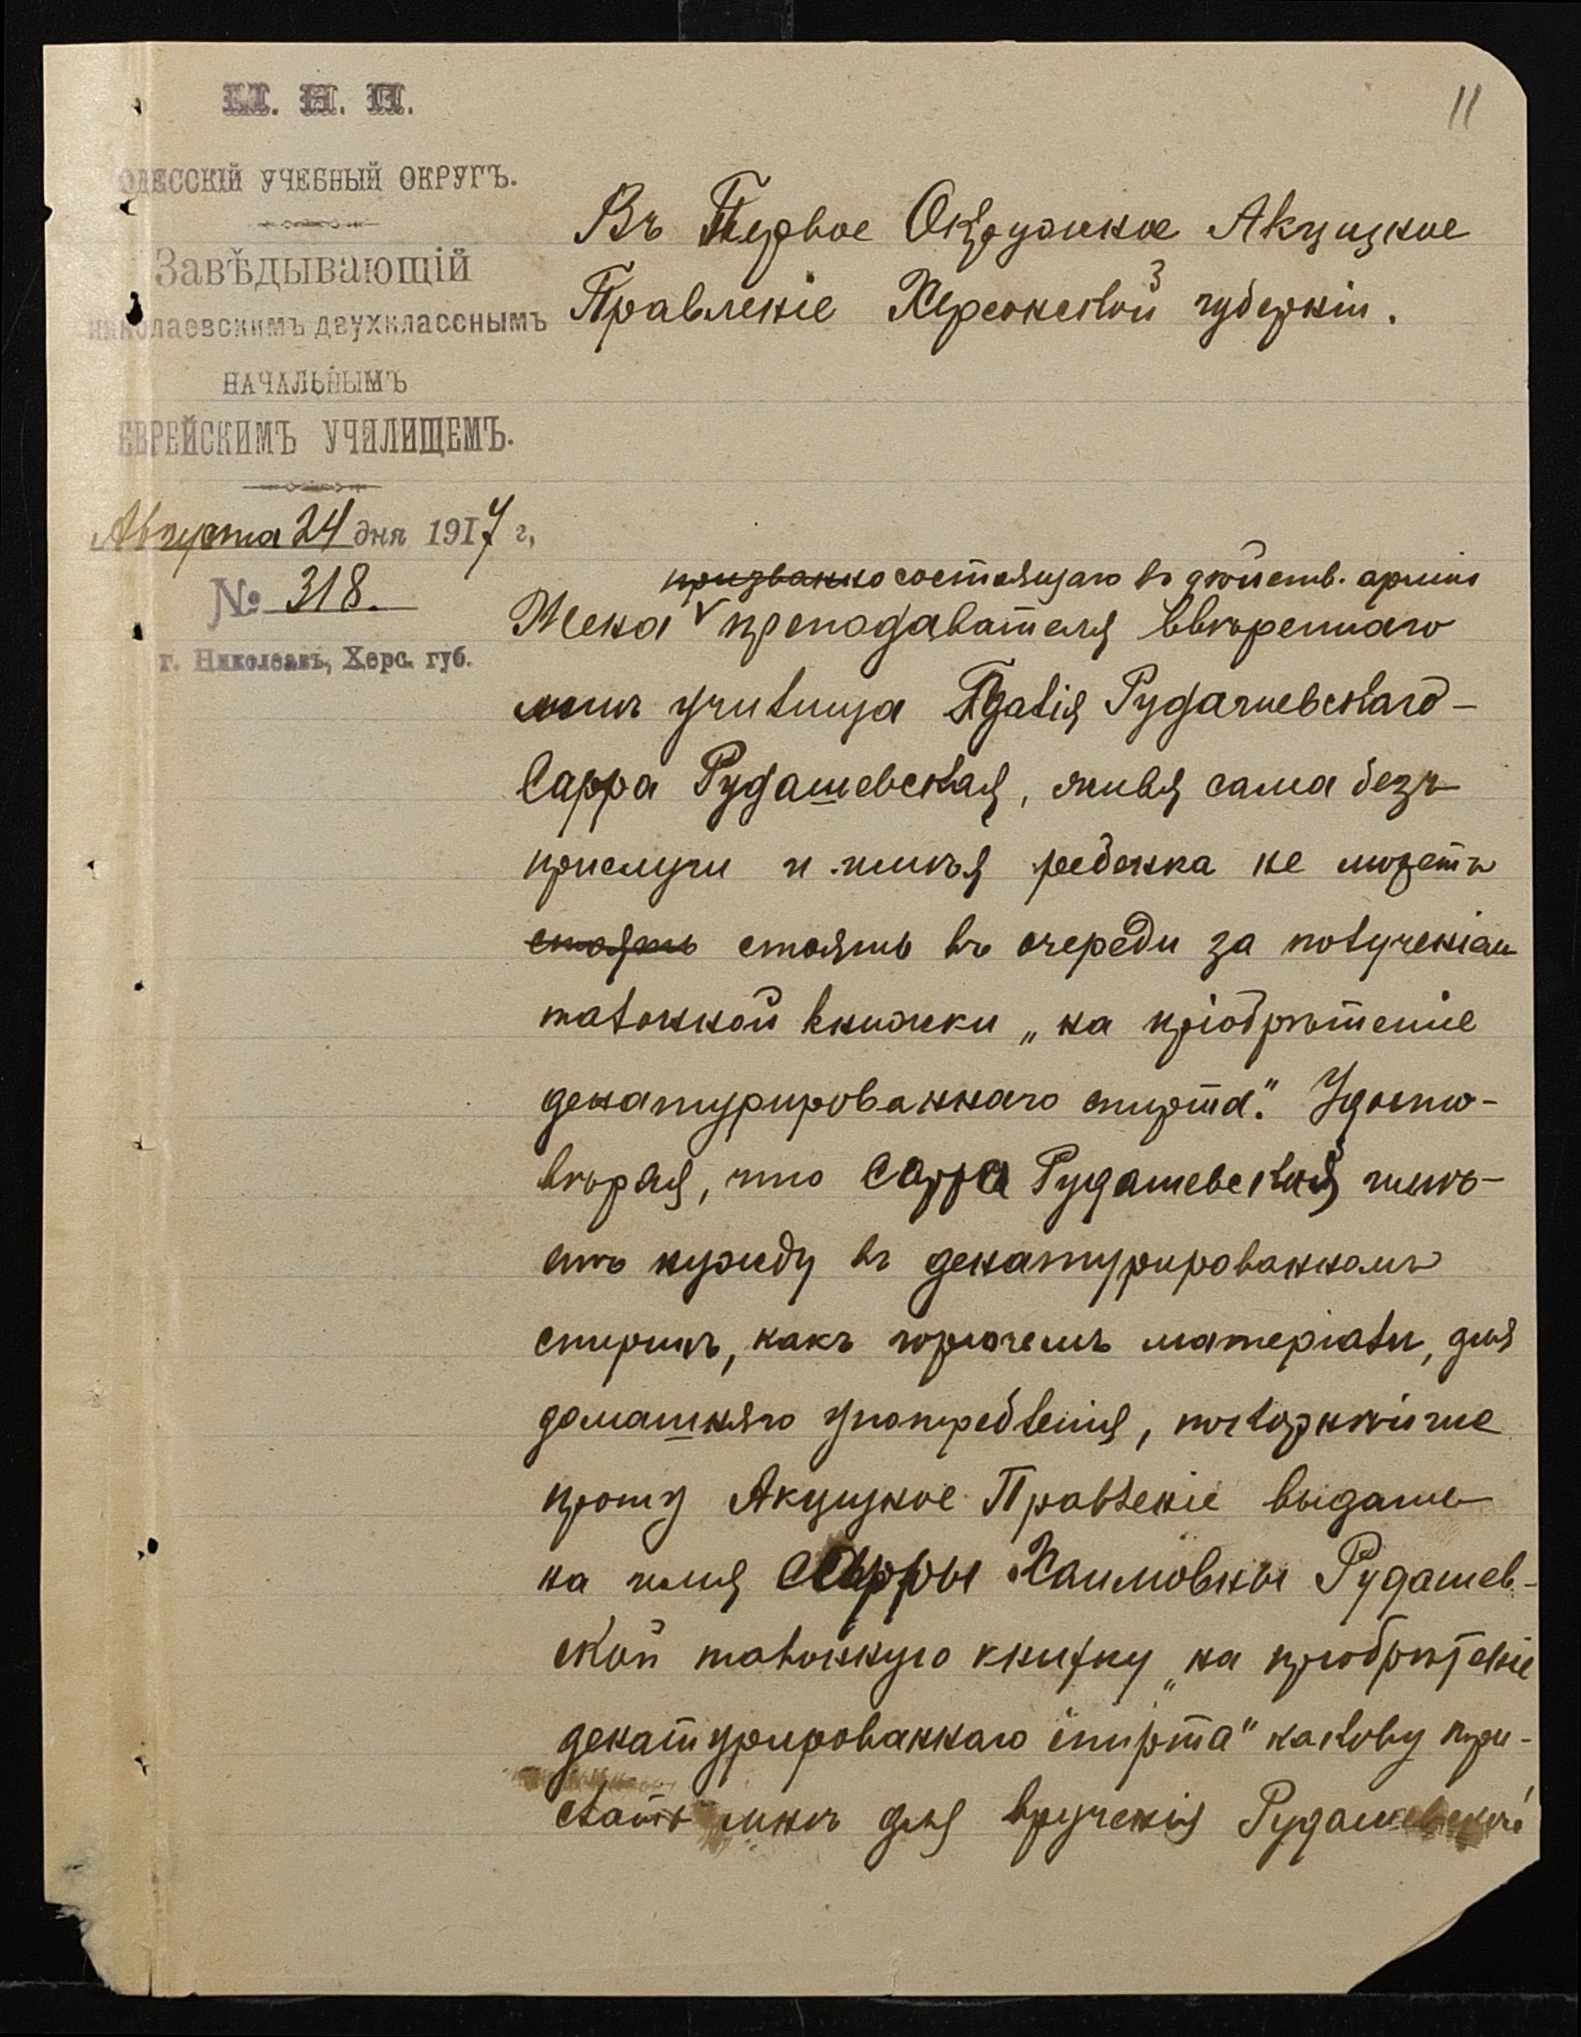 11
М. Н. П.
ОДЕССКІЙ УЧЕБНЫЙ ОКРУГЪ.
Завѣдывающій
НИКОЛАЕВСКИМЪ двухкласснымъ
НАЧАЛЬНЫМЪ
ЕВРЕЙСКИМЪ УЧИЛИЩЕМЪ.
Августа 24 дня 1917 г.
№ 318.
г. Николаевъ, Херс. губ.
Въ Первое Окружное Акцизное
Правленіе Херсонской губерніи.
призванно состоящаго въ дѣйств. арміи
Жена преподавателя ввѣреннаго
мнѣ училища Рудашевскаго –
Сарра Рудашевская, живя сама безъ
прислуги и имѣя ребенка не можетъ
стоять стоять въ очереди за полученіем
талонной книжки „на пріобрѣтеніе
денатурированнаго спирта". Удосто-
вѣряя, что Сарра Рудашевская имѣ-
етъ нужду въ денатурированномъ
спиртѣ, какъ горючемъ матеріалѣ, для
домашняго употребленія, покорнѣйше
прошу Акцизное Правленіе выдать
на имя Сарры Хаимовны Рудашев-
ской талонную книжку „на пріобрѣтеніе
денатурированнаго спирта" каковую при-
слать мнѣ для врученія Рудашевской